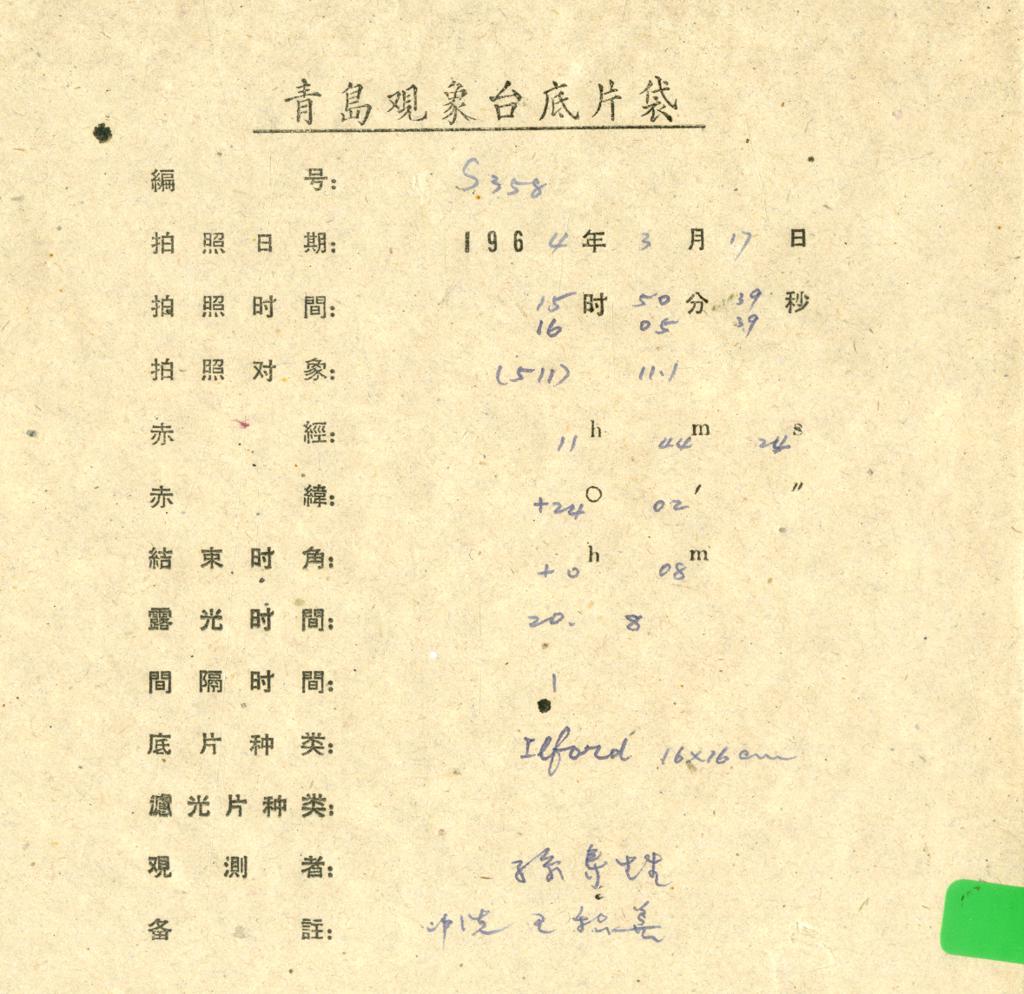 青島观象台底片袋
編号: S358
拍照日期: 1964年3月17日
拍照时間: 15时50分39秒
16 05 39
拍照对象: (511) 11.1
赤經: 11h 44m 24s
赤緯: +24° 02′ ″
結束时角: +0h 08m
露光时間: 20. 8
間隔时間: 1
底片种类: Ilford 16×16cm
濾光片种类:
观測者: 孫
备註: 冲洗 王